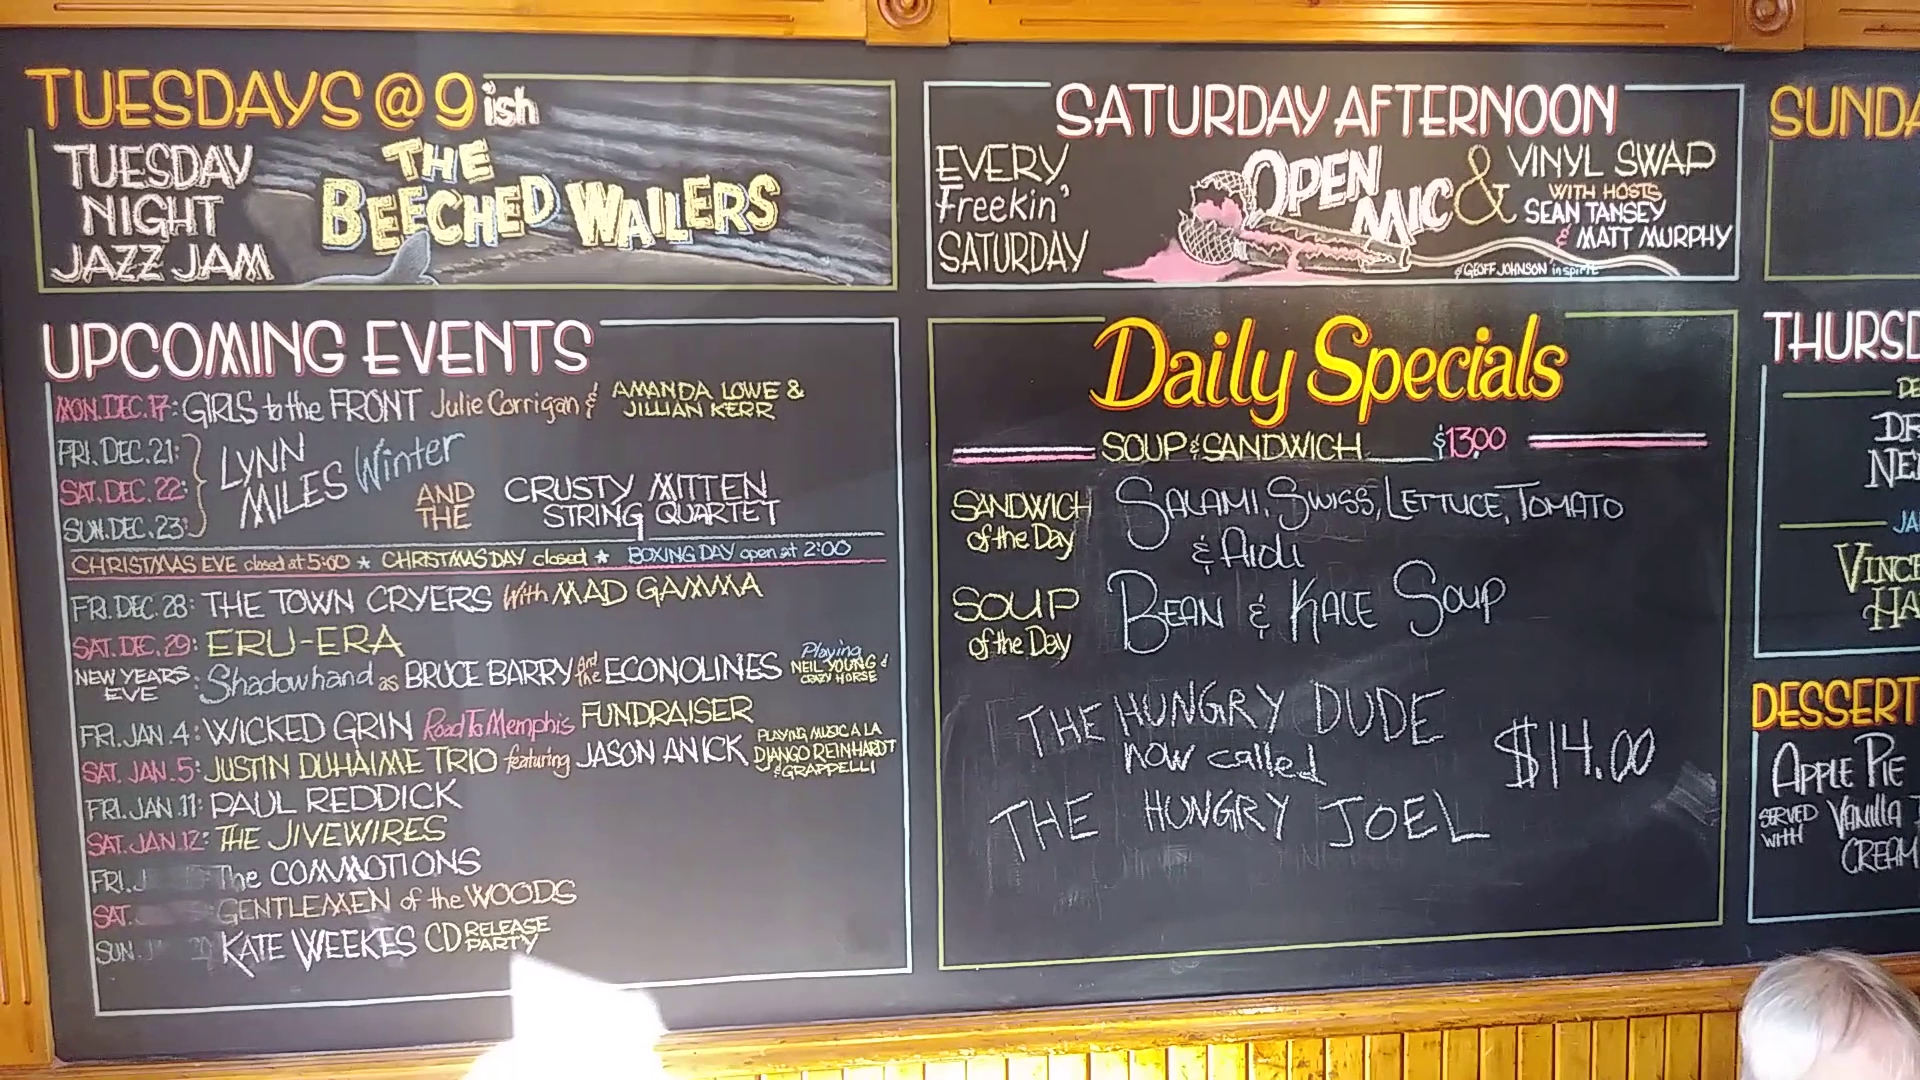 TUESDAYS @ 9 ish
TUESDAY
NIGHT
JAZZ JAM
THE
BEECHED WAILERS
SATURDAY AFTERNOON
EVERY
Freekin'
SATURDAY
OPEN
MIC &
VINYL SWAP
WITH HOSTS
SEAN TANSEY
& MATT MURPHY
& GEOFF JOHNSON "in spirit"
SUNDA
UPCOMING EVENTS
MON. DEC. 17: GIRLS to the FRONT Julie Corrigan & AMANDA LOWE &
JILLIAN KERR
FRI. DEC. 21:
SAT. DEC. 22:
SUN. DEC. 23:
LYNN
MILES Winter
AND
THE
CRUSTY MITTEN
STRING QUARTET
CHRISTMAS EVE closed at 5:00 ★ CHRISTMAS DAY closed ★ BOXING DAY open at 2:00
FRI. DEC. 28: THE TOWN CRYERS With MAD GAMMA
SAT. DEC. 29: ERU-ERA
NEW YEARS
EVE : Shadowhand as BRUCE BARRY And the ECONOLINES
Playing
NEIL YOUNG &
CRAZY HORSE
FRI. JAN. 4: WICKED GRIN Road To Memphis FUNDRAISER
SAT. JAN. 5: JUSTIN DUHAIME TRIO featuring JASON ANICK
PLAYING MUSIC A LA
DJANGO REINHARDT
& GRAPPELLI
FRI. JAN. 11: PAUL REDDICK
SAT. JAN. 12: THE JIVEWIRES
FRI. J The COMMOTIONS
SAT. GENTLEMEN of the WOODS
SUN. J KATE WEEKES CD RELEASE
PARTY
Daily Specials
SOUP & SANDWICH $13.00
SANDWICH
of the Day
SALAMI, SWISS, LETTUCE, TOMATO
& AIOLI
SOUP
of the Day
BEAN & KALE SOUP
THE HUNGRY DUDE
now called
THE HUNGRY JOEL
$14.00
THURSD
DE
DR
NE
JA
VINCE
HA
DESSERT
APPLE PIE
SERVED
WITH
VANILLA
CREAM